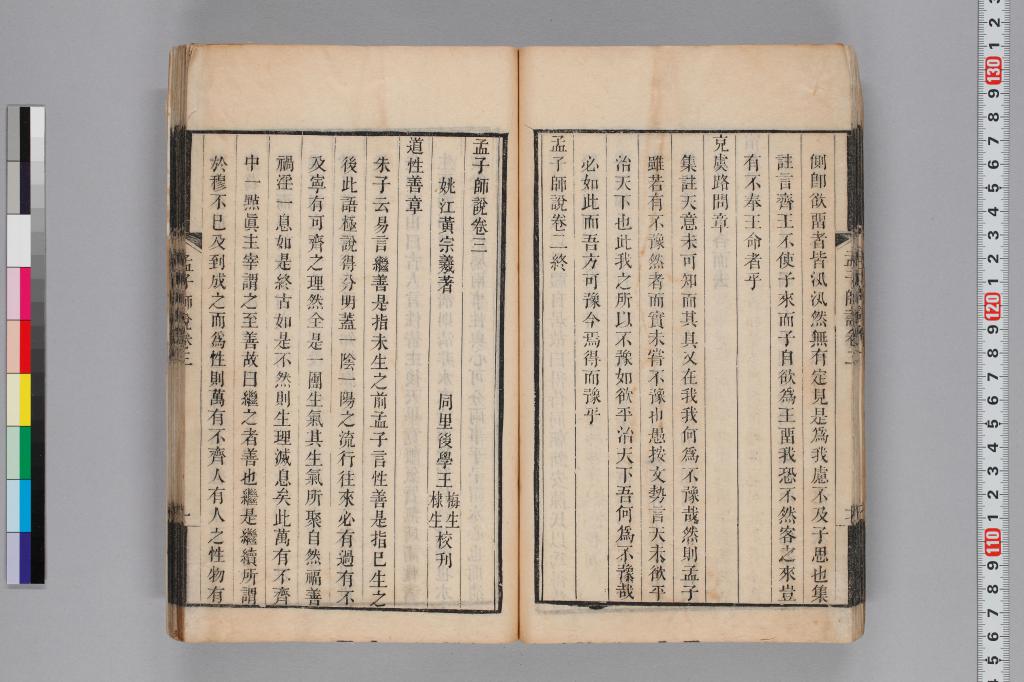 側卽欲畱者皆汎汎然無有定見是爲我慮不及子思也集
註言齊王不使子來而子自欲爲王畱我恐不然客之來豈
有不奉王命者乎
充虞路問章
集註天意未可知而其具又在我我何爲不豫哉然則孟子
雖若有不豫然者而實未嘗不豫也愚按文勢言天未欲平
治天下也此我之所以不豫如欲平治天下吾何爲不豫哉
必如此而吾方可豫今焉得而豫乎
孟子師說卷二終
孟子師說卷三
姚江黃宗羲著 同里後學王梅生棣生校刊
道性善章
朱子云易言繼善是指未生之前孟子言性善是指已生之
後此語極說得分明蓋一陰一陽之流行往來必有過有不
及寧有可齊之理然全是一團生氣其生氣所聚自然福善
禍淫一息如是終古如是不然則生理滅息矣此萬有不齊
中一點眞主宰謂之至善故曰繼之者善也繼是繼續所謂
於穆不已及到成之而爲性則萬有不齊人有人之性物有
孟子師說卷三
一